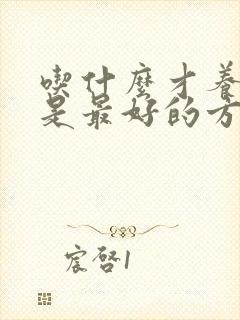 喫什麼才養
是最好的方
宸啓1